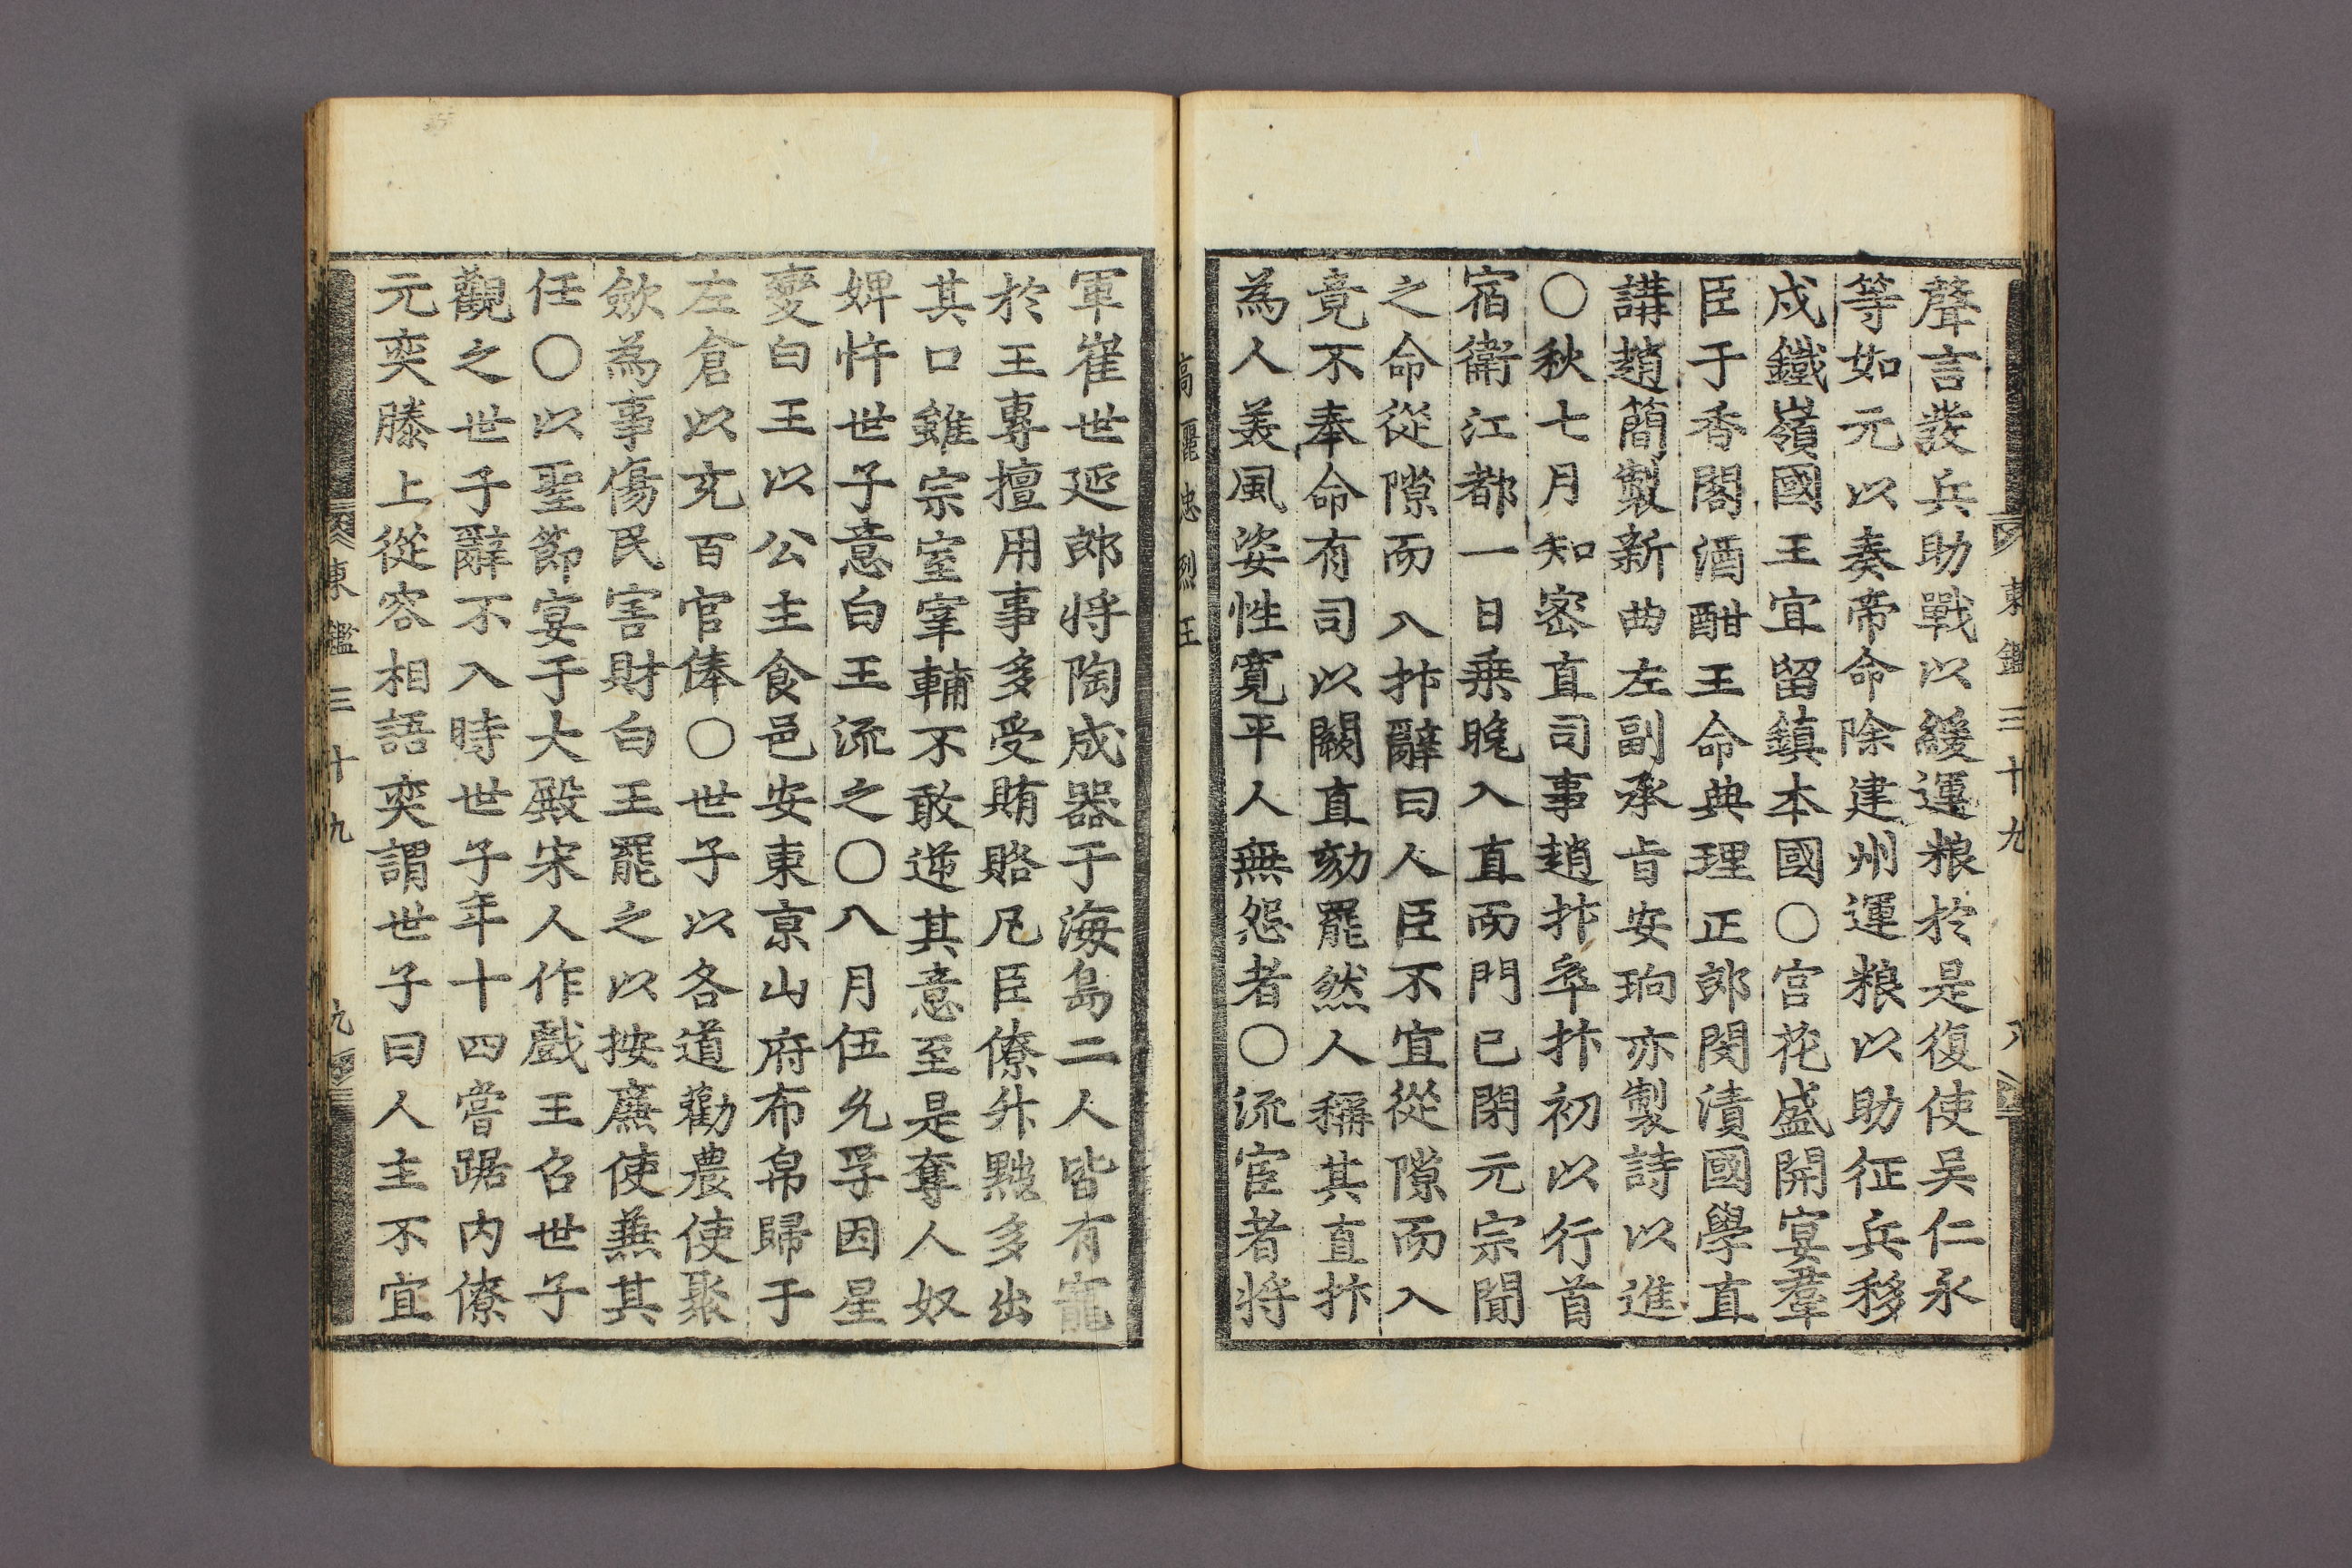 東鑑三十九 八
聲言發兵助戰以緩運粮於是復使吴仁永
等如元以奏帝命除建州運粮以助征兵移
戍鐵嶺國王宜留鎮本國○宫花盛開宴羣
臣于香閣酒酣王命典理正郎閔漬國學直
講趙簡製新曲左副承旨安珦亦製詩以進
○秋七月知密直司事趙抃卒抃初以行首
宿衛江都一日乗晚入直而門已閉元宗聞
之命從隙而入抃辭曰人臣不宜從隙而入
竟不奉命有司以闕直劾罷然人稱其直抃
為人美風姿性寛平人無怨者○流宦者将
高麗忠烈王
軍崔世延郎将陶成器于海島二人皆有寵
於王專擅用事多受賄賂凡臣僚升黜多出
其口雖宗室宰輔不敢逆其意至是奪人奴
婢忤世子意白王流之○八月伍允孚因星
變白王以公主食邑安東京山府布帛歸于
左倉以充百官俸○世子以各道勸農使聚
斂為事傷民害財白王罷之以按廉使兼其
任○以聖節宴于大殿宋人作戲王召世子
觀之世子辭不入時世子年十四嘗踞内僚
元奕膝上從容相語奕謂世子曰人主不宜
東鑑三十九 九